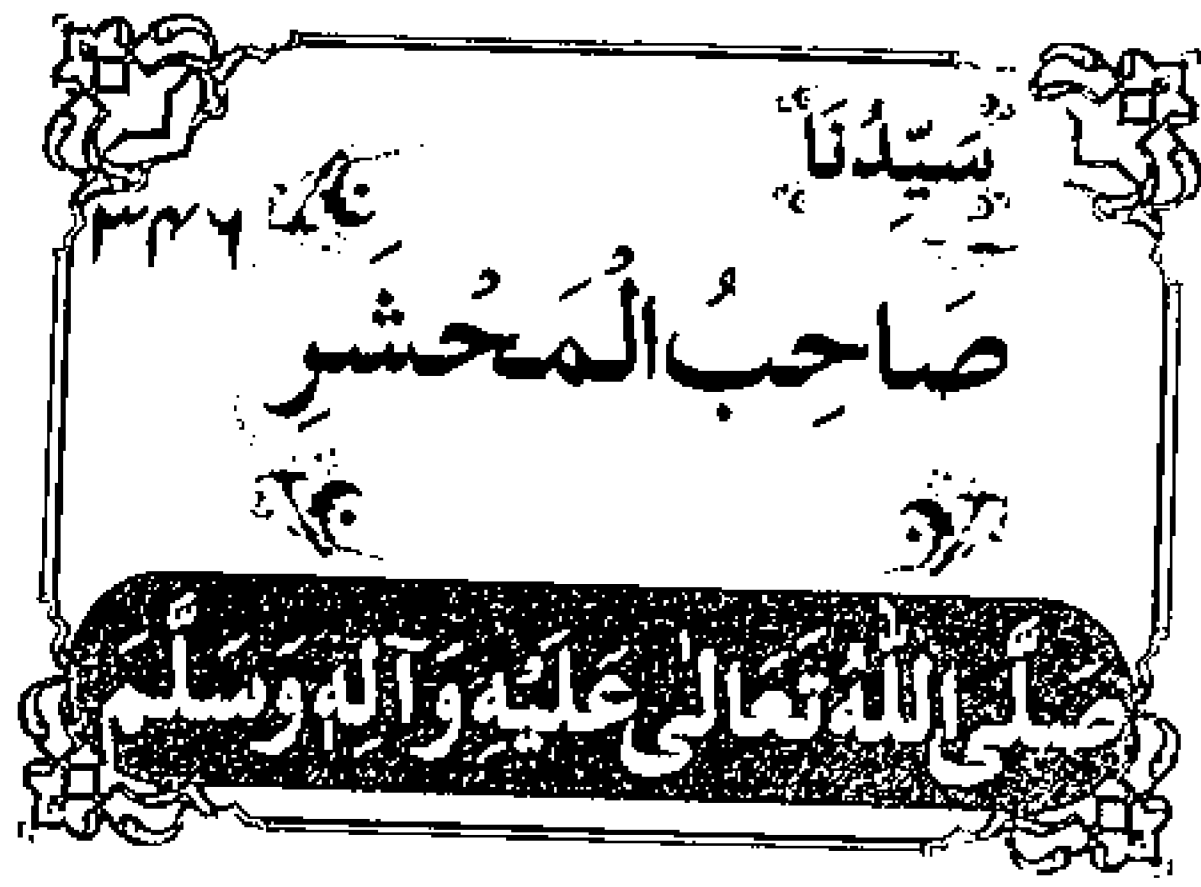 سَيِّدُنَا
٣٤٦
صَاحِبُ الْمَحْشَرِ
صَلَّى اللّٰهُ تَعَالٰى عَلَيْهِ وَآلِهٖ وَسَلَّمَ